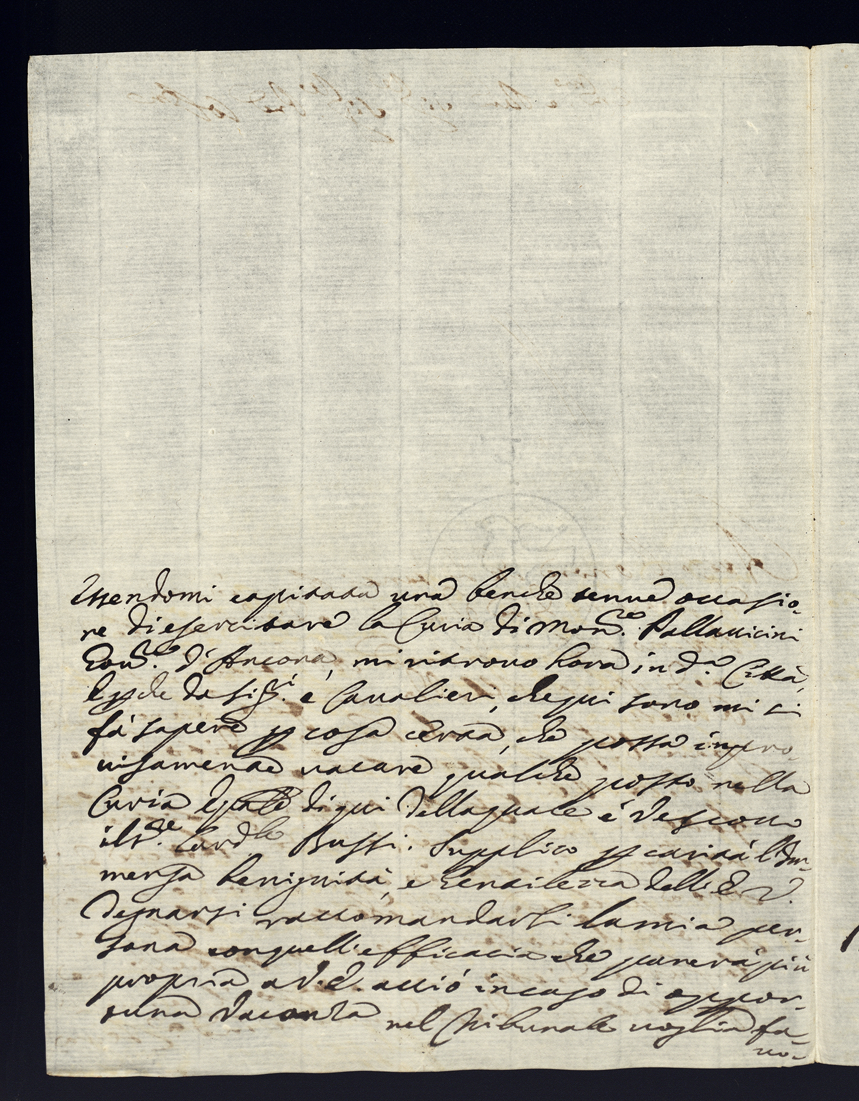 Essendomi capitata una benche tenue occasio-
ne di esercitare la Curia di Mons.re Pallauicini
Gou.re d'Ancona, mi ritrouo hora in d.a Città,
e Caualieri, che qui sono mi si
fà sapere p cosa certa, che possa impro-
uisamente uacare qualche posto nella
Curia di qui della quale é Vescouo
il S.re Card.le Bussi. Supplico p carità l'Im-
mensa benignità, e Gentilezza dell' E. V.
degnarsi raccomandarli la mia per-
sona con quell' efficacia che parerà più
propria a V. E. acciò in caso di oppor-
tuna Vacanza nel Tribunale uoglia fa-
uo-